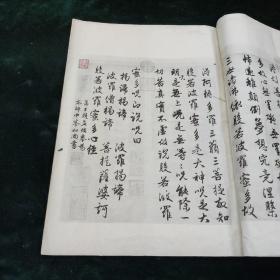 遠離顛倒夢想究竟涅槃
三世諸佛依般若波羅蜜多故
得阿耨多羅三藐三菩提故知
般若波羅蜜多是大神咒是大
明咒是無上咒是無等等咒能除一
切苦真實不虛故說般若波羅
蜜多咒即說咒曰
揭諦揭諦 波羅揭諦
波羅僧揭諦 菩提薩婆訶
般若波羅蜜多心經
弟子趙孟頫奉為
本師中峯和尚書